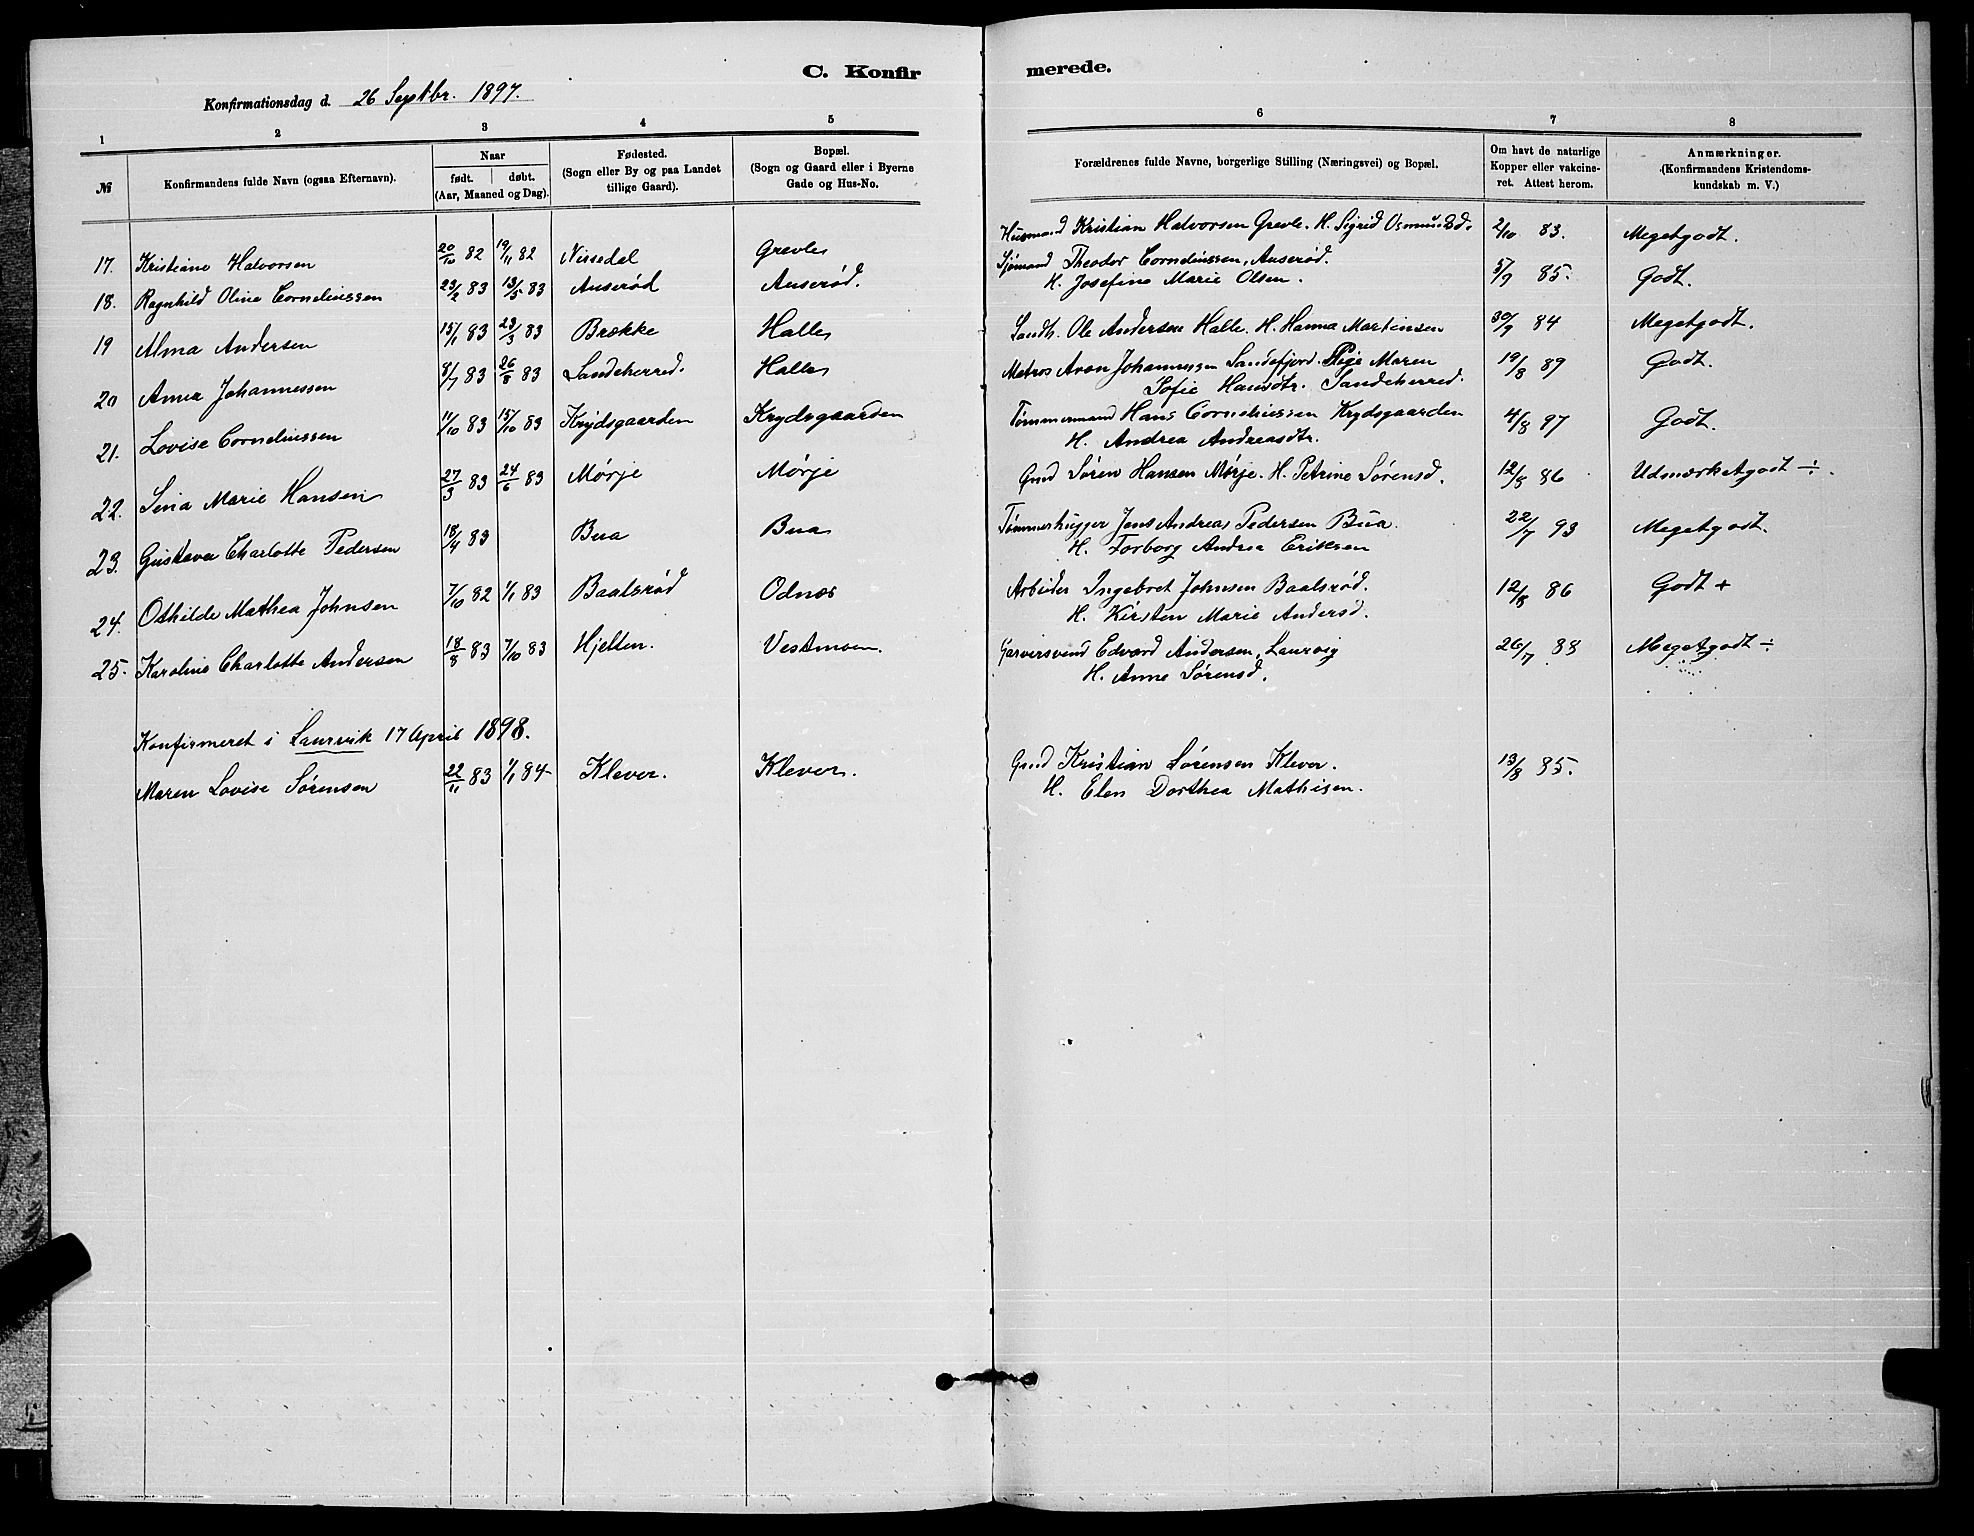 C. Konfirmerede.
Konfirmationsdag d. 26 Septbr. 1897.
1 2 3 4 5 6 7 8
№ Konfirmandens fulde Navn (ogsaa Efternavn). Naar født. døbt. (Aar, Maaned og Dag). Fødested. (Sogn eller By og paa Landet tillige Gaard). Bopæl. (Sogn og Gaard eller i Byerne Gade og Hus-No. Forældrenes fulde Navne, borgerlige Stilling (Næringsvei) og Bopæl. Om havt de naturlige Kopper eller vakcineret. Attest herom. Anmærkninger. (Konfirmandens Kristendomskundskab m. V.)
17. Kristiane Halvorsen 20/10 82 19/11 82 Nissedal Grevle Husmand Kristian Halvorsen Grevle. H. Sigrid Osmundsd. 2/10 83. Megetgodt.
18. Ragnhild Oline Corneliussen 23/2 83 13/5 83 Auserød Auserød. Sjømand Theodor Corneliussen, Auserød. 5/9 85. Godt.
H. Josefine Marie Olsen.
19 Alma Andersen 15/1 83 23/3 83 Brække Halle Landh. Ole Andersen Halle. H. Hanna Martinsen 30/9 84 Megetgodt.
20 Anna Johannessen 8/7 83 26/8 83 Sandeherred. Halle Matros Aron Johannessen Sandefjord. Pige Maren 19/8 89 Godt.
Sofie Hansdtr. Sandeherred.
21. Lovise Corneliussen 11/10 83 15/10 83 Krydsgaarden Krydsgaarden Tømmermand Hans Corneliussen Krydsgaarden 4/8 97 Godt.
H. Andrea Andreasdtr.
22. Lina Marie Hansen 27/3 83 24/6 83 Mørje Mørje Gmd Søren Hansen Mørje. H. Petrine Sørensd. 12/8 86 Udmærketgodt ÷.
23. Gustava Charlotte Pedersen 18/4 83 Bua Bua Tømmerhugger Jens Andreas Pedersen Bua. 22/7 93 Megetgodt.
H. Torborg Andrea Eriksen
24. Othilde Mathea Johnsen 7/10 82 1/1 83 Baalsrød Odnæs Arbeider Ingebret Johnsen Baalsrød. 12/8 86 Godt +
H. Kirsten Marie Andersd.
25. Karoline Charlotte Andersen 18/8 83 7/10 83 Hjelten. Vestmoen. Garversvend Edvard Andersen, Laurvig 26/7 88 Megetgodt ÷
H. Anne Sørensd.
Konfirmeret i Laurvik 17 April 1898.
Maren Lovise Sørensen 22/11 83 1/1 84 Klever. Klever. Gmd Kristian Sørensen Klever. 13/8 85.
H. Elen Dorthea Mathisen.